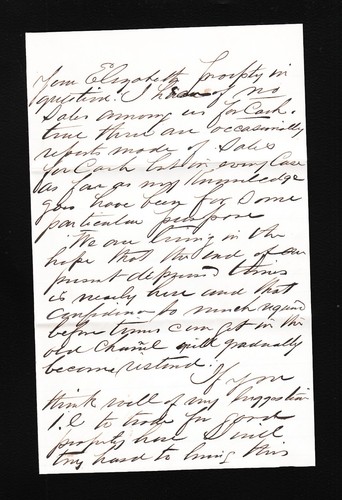 your Elizabeth property in
question. I hear of no
Sales among us for Cash.
true there are occasionally
reports made of Sales
for Cash but in every Case
as far as my Knowledge
goes have been for some
particular purpose
We are living in the
hope that the end of our
present depressed times
is nearly here and that
confidence so much required
before times can get in the
old Channel will gradually
become restored.
If you
think well of my suggestion
I.E to trade for good
property here I will
try hard to bring this